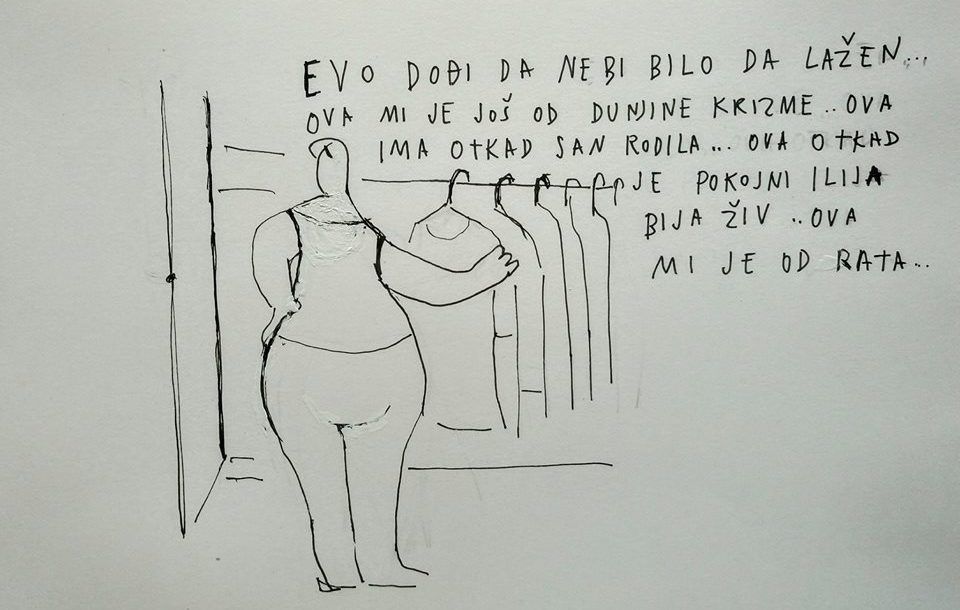 EVO DOĐI DA NEBI BILO DA LAŽEN...
OVA MI JE JOŠ OD DUNJINE KRIZME.. OVA
IMA OTKAD SAN RODILA... OVA OTKAD
JE POKOJNI ILIJA
BIJA ŽIV .. OVA
MI JE OD RATA..